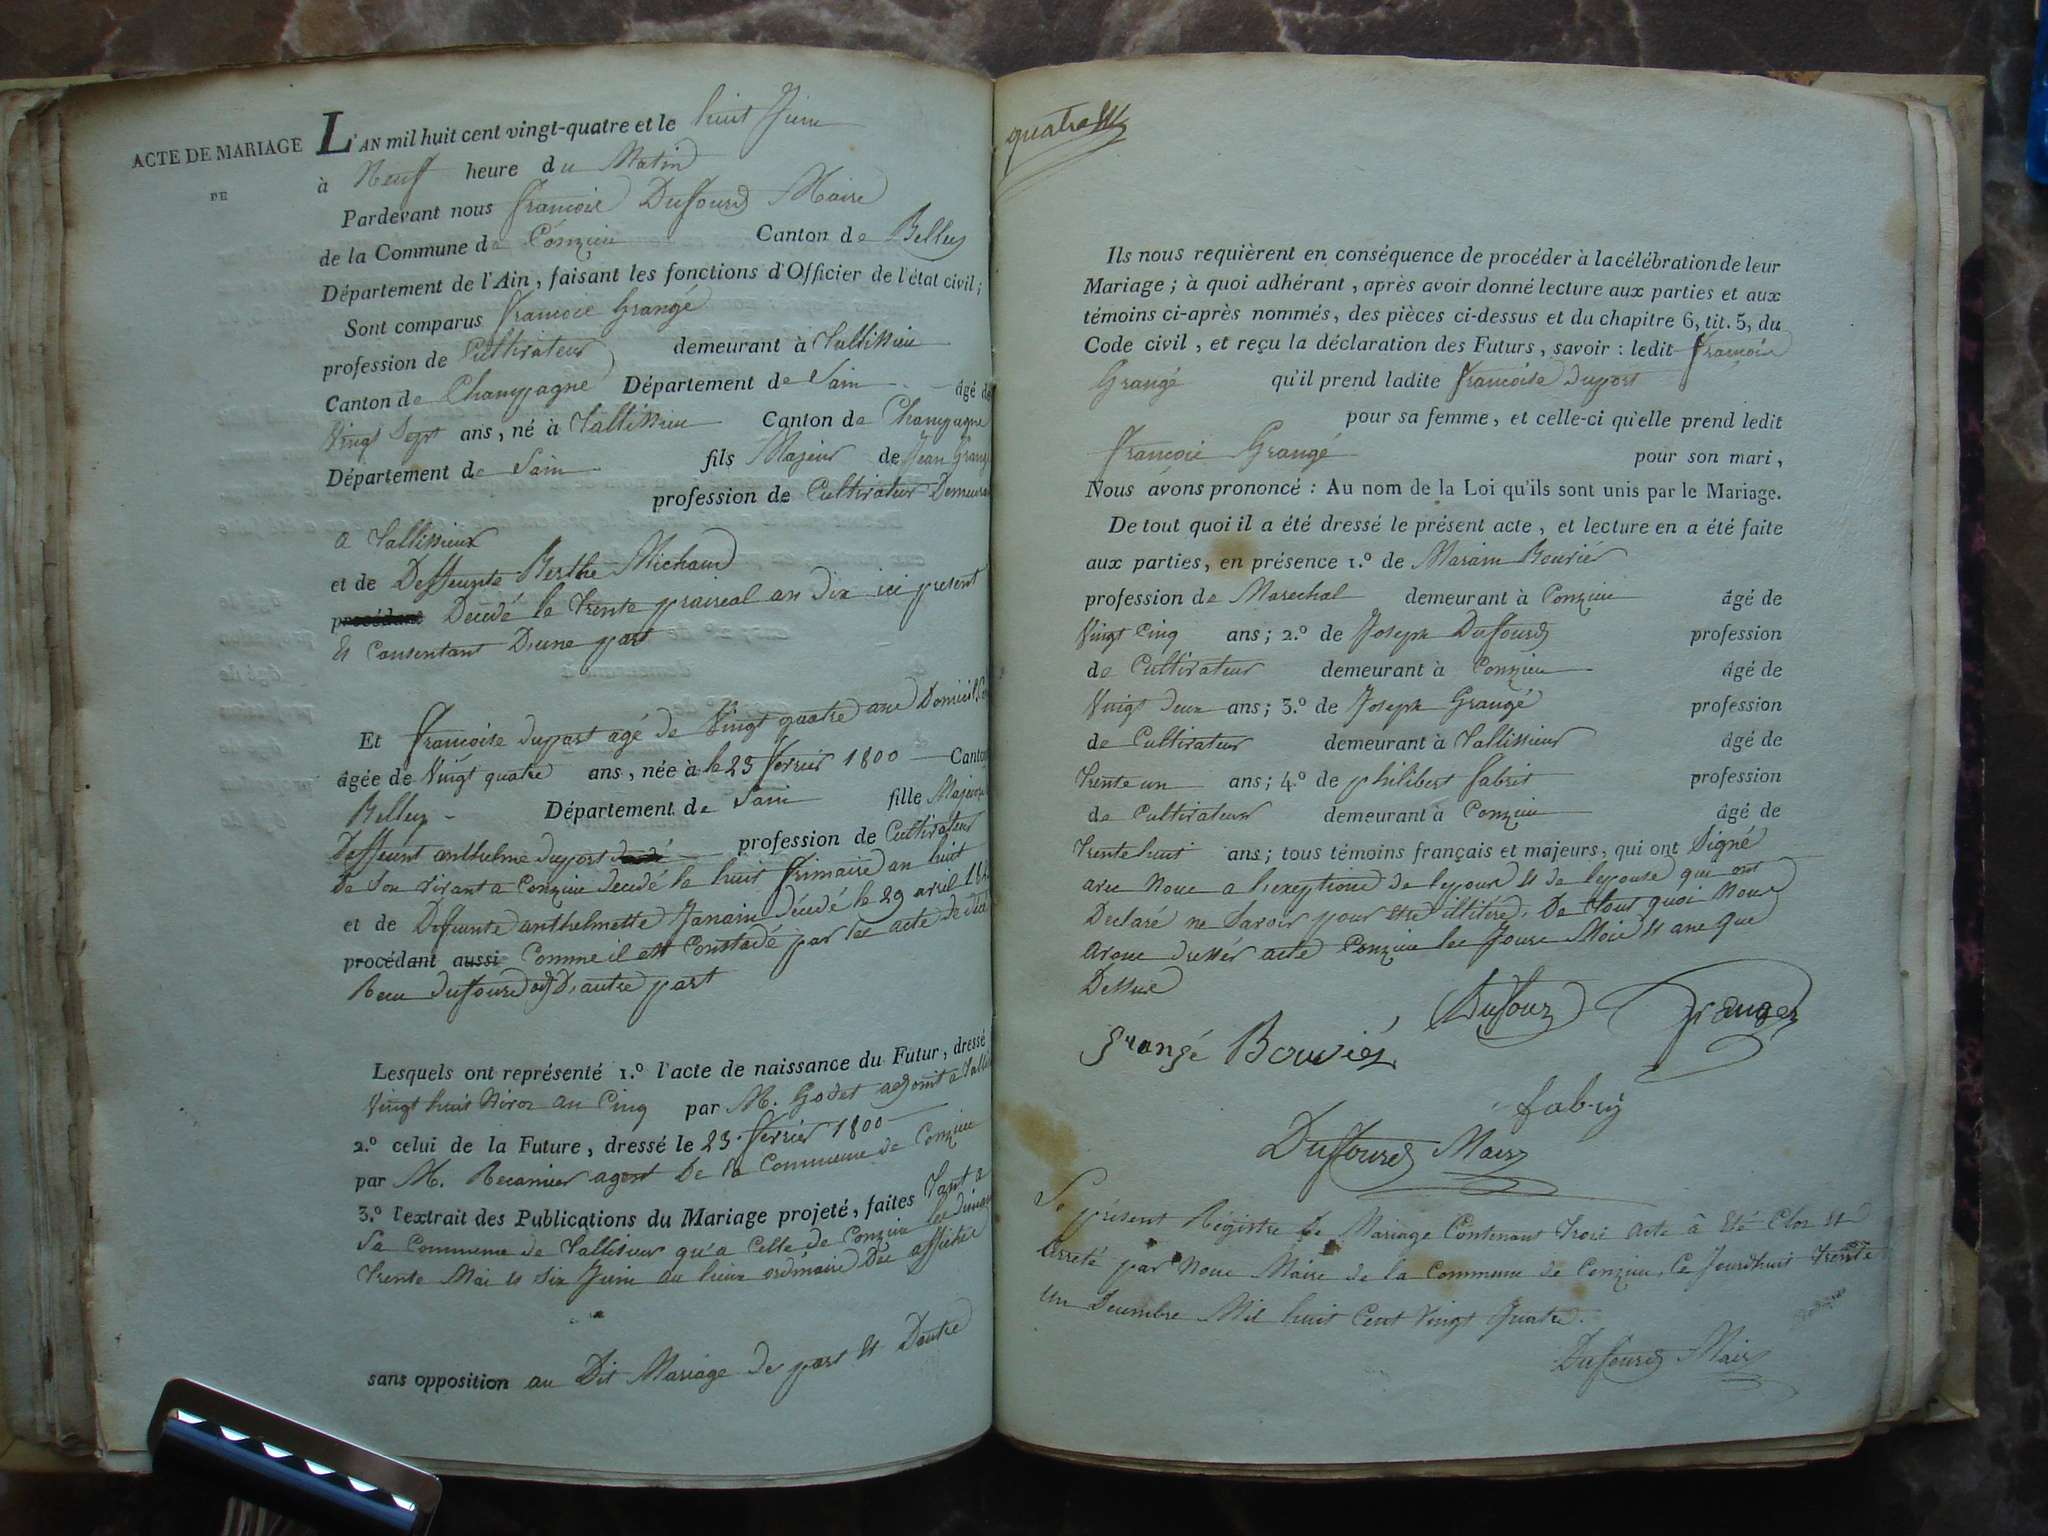 ACTE DE MARIAGE
DE
L'AN mil huit cent vingt-quatre et le huit Juin
à Neuf heure du Matin
Pardevant nous francois Duffourd Maire
de la Commune de Conzieu Canton de Belley
Département de l'Ain, faisant les fonctions d'Officier de l'état civil;
Sont comparus francois Grangé
profession de Cultivateur demeurant à Tallissieu
Canton de Champagne Département de Lain âgé de
Vingt Sept ans, né à Tallissieu Canton de Champagne
Département de Lain fils Majeur de Jean Grangé
profession de Cultivateur Demeurant
a Tallissieux
et de Deffeunte Berthe Michaud
procédant Décédé le trente praireal an Dix ici present
Et Consentant D'une part
Et francoise duport agé de Vingt quatre ans
âgée de Vingt quatre ans, née à le 23 fevrier 1800 Canton
Belley Département de Lain fille Majeure
Deffeunt anthelme duport profession de Cultivateur
de Son vivant a Conzieu decedé le huit frimaire an huit
et de Defeunte anthelmette Janain décédé le 29 avril
procédant aussi Comme il est Constadé par les acte de
Recu duffourd D'autre part
Lesquels ont représenté 1.º l'acte de naissance du Futur, dressé
Vingt huit Nivoz an Cinq par M. Godet adjoint a
2.º celui de la Future, dressé le 23 fevrier 1800
par M. Recamier agent De la Commune de Conzieu
3.º l'extrait des Publications du Mariage projeté, faites tant a
La Commune de Tallisieux qu'a Celle de Conzieu les
trente Mai et Six Juin au lieux ordinaire des affiche
sans opposition au Dit Mariage de part et Dautre
quatre
Ils nous requièrent en conséquence de procéder à la célébration de leur
Mariage; à quoi adhérant, après avoir donné lecture aux parties et aux
témoins ci-après nommés, des pièces ci-dessus et du chapitre 6, tit. 5, du
Code civil, et reçu la déclaration des Futurs, savoir: ledit francois
Grangé qu'il prend ladite francoise duport
pour sa femme, et celle-ci qu'elle prend ledit
francois Grangé pour son mari,
Nous avons prononcé: Au nom de la Loi qu'ils sont unis par le Mariage.
De tout quoi il a été dressé le présent acte, et lecture en a été faite
aux parties, en présence 1.º de Marain Bouvier
profession de Marechal demeurant à Conzieu âgé de
Vingt Cinq ans; 2.º de Joseph Duffourd profession
de Cultivateur demeurant à Conzieu âgé de
Vingt deux ans; 3.º de Joseph Grangé profession
de Cultivateur demeurant à Tallissieux âgé de
trente un ans; 4.º de philibert fabrit profession
de Cultivateur demeurant à Conzieu âgé de
trente huit ans; tous témoins français et majeurs, qui ont Signé
avec Nous a l'exeption de lepoux et de lepouse qui ont
Declaré ne Savoir pour etre illitéré. De tout quoi Nous
avons dressér acte Conzieu les Jours Mois et ans que
Dessus
Dufour Grangé
grangé Bouvier
fabry
Duffourd Maire
Le présent Régistre de Mariage Contenant trois acte à été Clos et
Arreté par Nous Maire de la Commune de Conzieu, Ce Jourdhuit trente
un Decembre Mil huit Cent Vingt Quatre.
Duffourd Maire